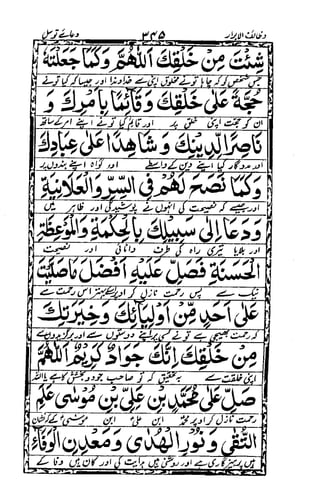 دعائے توسل ۲۴۵ وظائف الابرار
شِئْتَ مِنْ خَلْقِكَ اَللّٰهُمَّ وَكَمَا جَعَلْتَهٗ
جس شخص کو کہ چاہا تو نے مخلوق اپنی سے خداوندا اور جیسا کہ کیا تو نے
حُجَّةً عَلٰى خَلْقِكَ وَقَائِمًا بِاَمْرِكَ وَ
ان کو حجت اپنی خلق پر اور قائم کیا تو نے اپنے امر کے ساتھ
نَاصِرًا لِدِيْنِكَ وَشَاهِدًا عَلٰى عِبَادِكَ
اور مددگار کیا اپنے دین کے واسطے اور گواہ اپنے بندوں پر
وَكَمَا نَصَحَ لَهُمْ فِى السِّرِّ وَالْعَلَانِيَةِ
اور جیسے کہ نصیحت کی انہوں نے پوشیدگی اور ظاہر میں
وَدَعَا اِلٰى سَبِيْلِكَ بِالْحِكْمَةِ وَالْمَوْعِظَةِ
اور بلایا تیری راہ کی طرف دانائی اور نصیحت
الْحَسَنَةِ فَصَلِّ عَلَيْهِ اَفْضَلَ مَا صَلَّيْتَ
نیک سے پس رحمت نازل کر اوپر بہتر اس رحمت سے
عَلٰى اَحَدٍ مِّنْ اَوْلِيَائِكَ وَخِيَرَتِكَ
کہ رحمت بھیجی ہے تو نے کسی پر اپنے دوستوں سے اور
مِنْ خَلْقِكَ اِنَّكَ جَوَادٌ كَرِيْمٌ اَللّٰهُمَّ
اپنی خلقت سے بہ تحقیق کہ تو صاحب جود و بخشش کا ہے یا اللہ
صَلِّ عَلٰى مُحَمَّدِ بْنِ عَلِىِّ بْنِ مُوْسٰى عَلَمِ
رحمت نازل کر اوپر محمد ابن علی ابن موسیٰ کے کہ نشان
التُّقٰى وَنُوْرِ الْهُدٰى وَمَعْدِنِ الْوَفَاءِ
ہیں پرہیزگاری کے اور روشنی ہیں ہدایت کی اور کان ہیں وفا کے